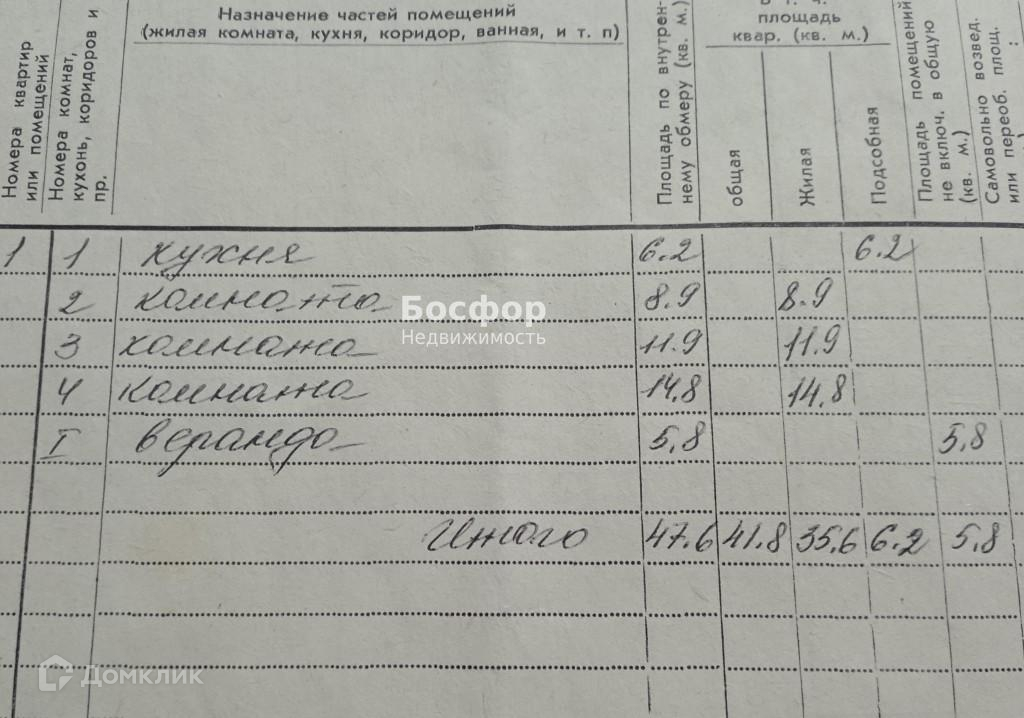 Номера квартир или помещений
Номера комнат, кухонь, коридоров и пр.
Назначение частей помещений
(жилая комната, кухня, коридор, ванная, и т. п)
Площадь по внутрен-
нему обмеру (кв. м.)
в т. ч.
площадь
квар. (кв. м.)
общая
Жилая
Подсобная
Площадь помещений
не включ. в общую
(кв. м.)
Самовольно возвед.
или переоб. площ.
1 1 кухня 6.2 6.2
2 комната 8.9 8.9
Босфор
Недвижимость
3 комната 11.9 11.9
4 комната 14.8 14.8
I веранда 5,8 5,8
Итого 47.6 41.8 35.6 6.2 5,8
Домклик